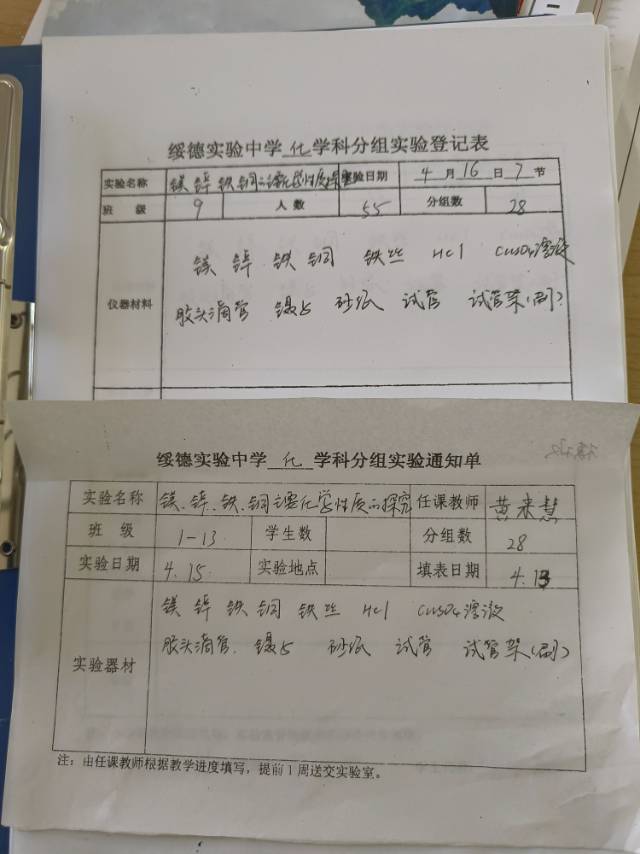 绥德实验中学 化 学科分组实验登记表
实验名称 镁 锌 铁 铜主要化学性质探究 实验日期 4 月 16 日 7 节
班 级 9 人 数 55 分组数 28
仪器材料
镁 锌 铁 铜 铁丝 HCl CuSO4溶液
胶头滴管 镊子 砂纸 试管 试管架(刷)
绥德实验中学 化 学科分组实验通知单
实验名称 镁、锌、铁、铜主要化学性质的探究 任课教师 黄 慧
班 级 1-13 学生数 分组数 28
实验日期 4.15 实验地点 填表日期 4.13
实验器材
镁 锌 铁 铜 铁丝 HCl CuSO4溶液
胶头滴管 镊子 砂纸 试管 试管架(刷)
注：由任课教师根据教学进度填写，提前1周送交实验室。